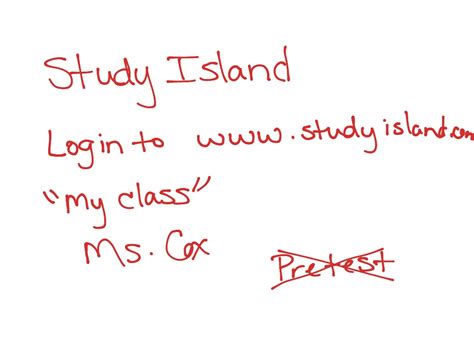 Study Island
Login to www.studyisland.com
"My class"
Ms. Cox
Pretest